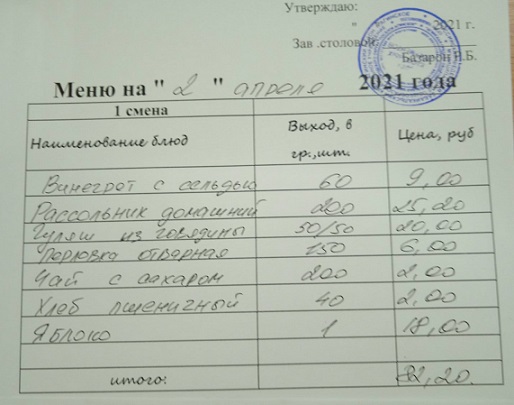 Утверждаю:
" 2021 г.
Зав .столовой
Базарон В.Б.
Меню на " 2 " апреля 2021 года
1 смена
Наименование блюд Выход, в гр.,шт. Цена, руб
Винегрот с сельдью 60 9,00
Рассольник домашний 200 25,20
Гуляш из говядины 50/50 20,00
Перловка отварная 150 6,00
Чай с сахаром 200 2,00
Хлеб пшеничный 40 2,00
Яблоко 1 18,00
итого: 82,20.